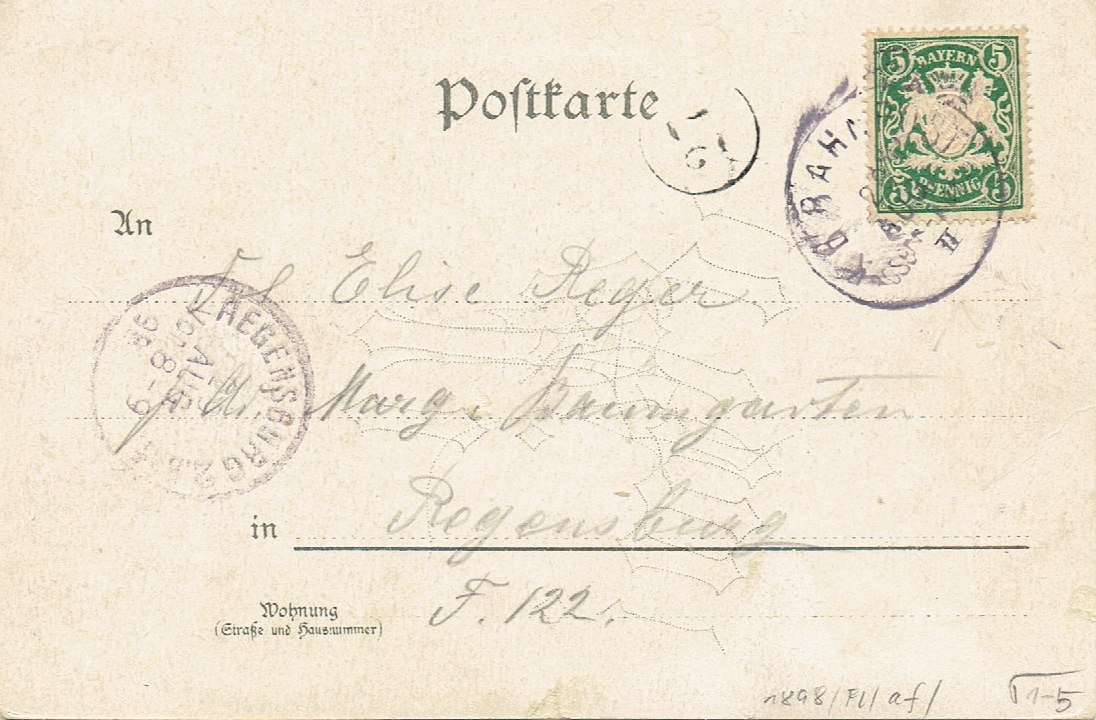 Postkarte
5 BAYERN 5
5 PFENNIG 5
K.B.BAHN
II
16
An
Frl Elise Reger
REGENSBURG 2.
AUG
8-9
98
Marg. Baumgarten
in Regensburg
Wohnung
(Straße und Hausnummer)
F. 122.
1898/
1-5